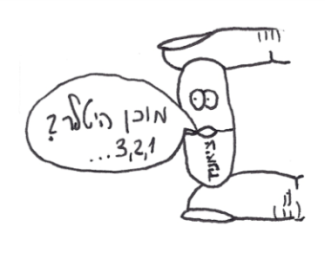 מוכן היטלר?
3,2,1...